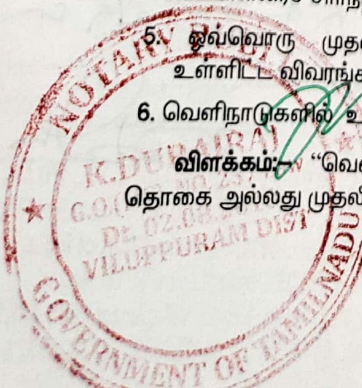 5. ஒவ்வொரு முத
உள்ளிட்ட விவரங்க
6. வெளிநாடுகளில் உ
விளக்கம்:– “வெ
தொகை அல்லது முதலீ
NOTARY
K.DURAIRAJ
G.O.
VILUPPURAM DIST
GOVERNMENT OF TAMILNADU